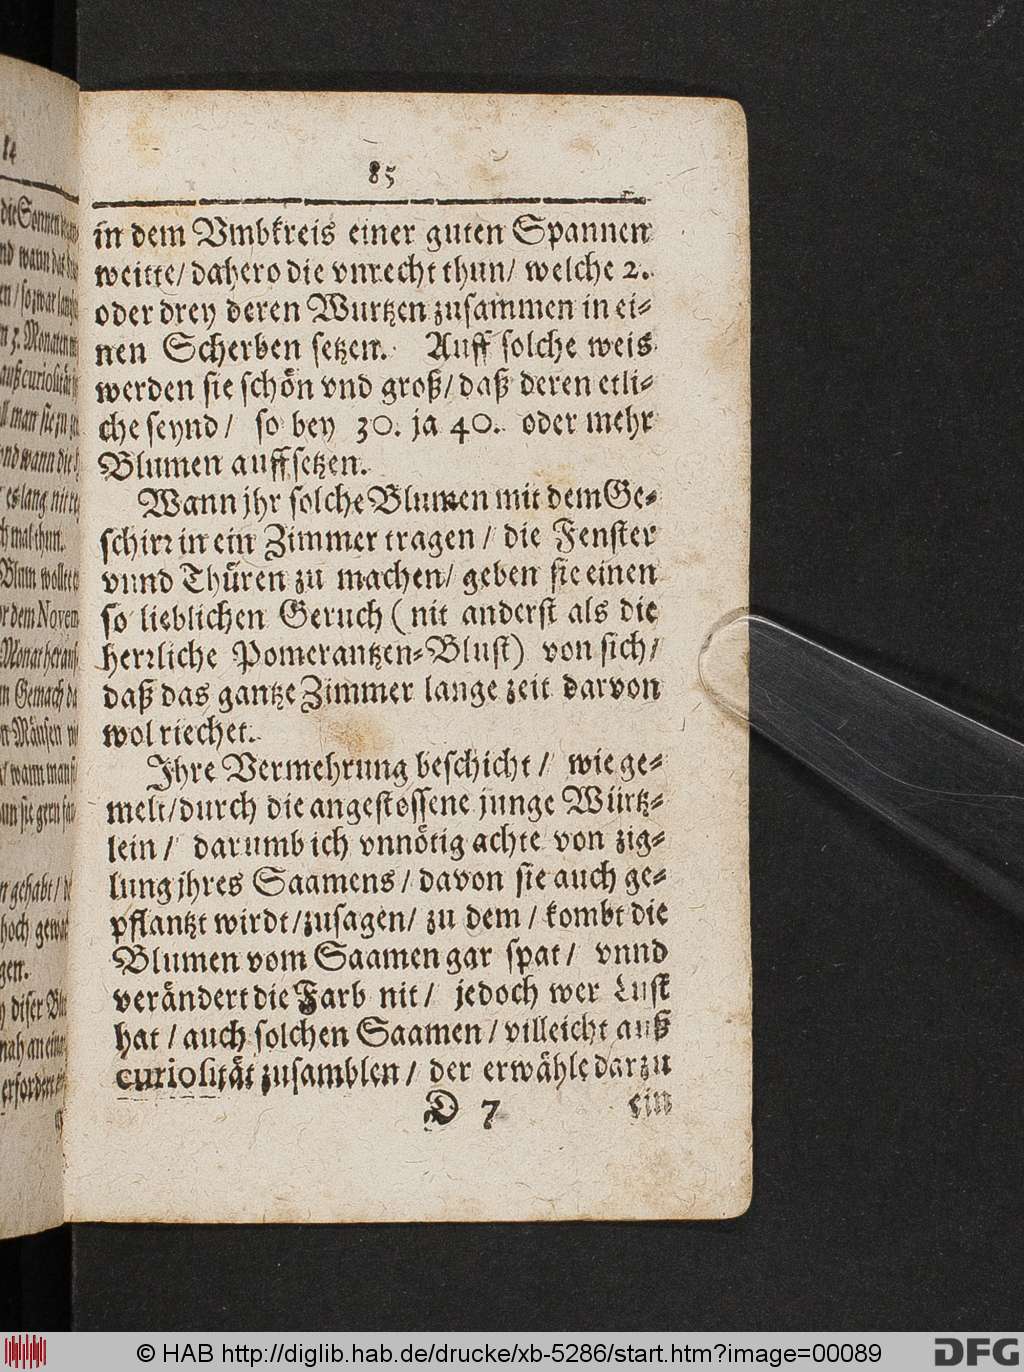 85
in dem Vmbkreis einer guten Spannen
weitte/ dahero die vnrecht thun/ welche 2.
oder drey deren Wurtzen zusammen in ei-
nen Scherben setzen. Auff solche weis
werden sie schön vnd groß/ daß deren etli-
che seynd/ so bey 30. ja 40. oder mehr
Blumen auffsetzen.
Wann jhr solche Blumen mit dem Ge-
schirr in ein Zimmer tragen/ die Fenster
vnnd Thüren zu machen/ geben sie einen
so lieblichen Geruch (nit anderst als die
herrliche Pomerantzen-Blust) von sich/
daß das gantze Zimmer lange zeit darvon
wol riechet.
Jhre Vermehrung beschicht/ wie ge-
melt/ durch die angestossene junge Würtz-
lein/ darumb ich vnnötig achte von zig-
lung jhres Saamens/ davon sie auch ge-
pflantzt wirdt/ zusagen/ zu dem/ kombt die
Blumen vom Saamen gar spat/ vnnd
verändert die Farb nit/ jedoch wer Lust
hat/ auch solchen Saamen/ villeicht auß
curiosität zusamblen/ der erwähle darzu
D 7 ein
84
die Sonnen
nd wann
n 3. Monaten
auß curiosität
ll man sie zu
vnd wann die
es lang nit
ch mal thun.
Blum wollte
or dem Novem
Monat herauß
in Gemach
n Mäusen
wann man
un sie gern
n gehabt/
hoch
gen.
diser
nah an
erfordert
© HAB http://diglib.hab.de/drucke/xb-5286/start.htm?image=00089
DFG